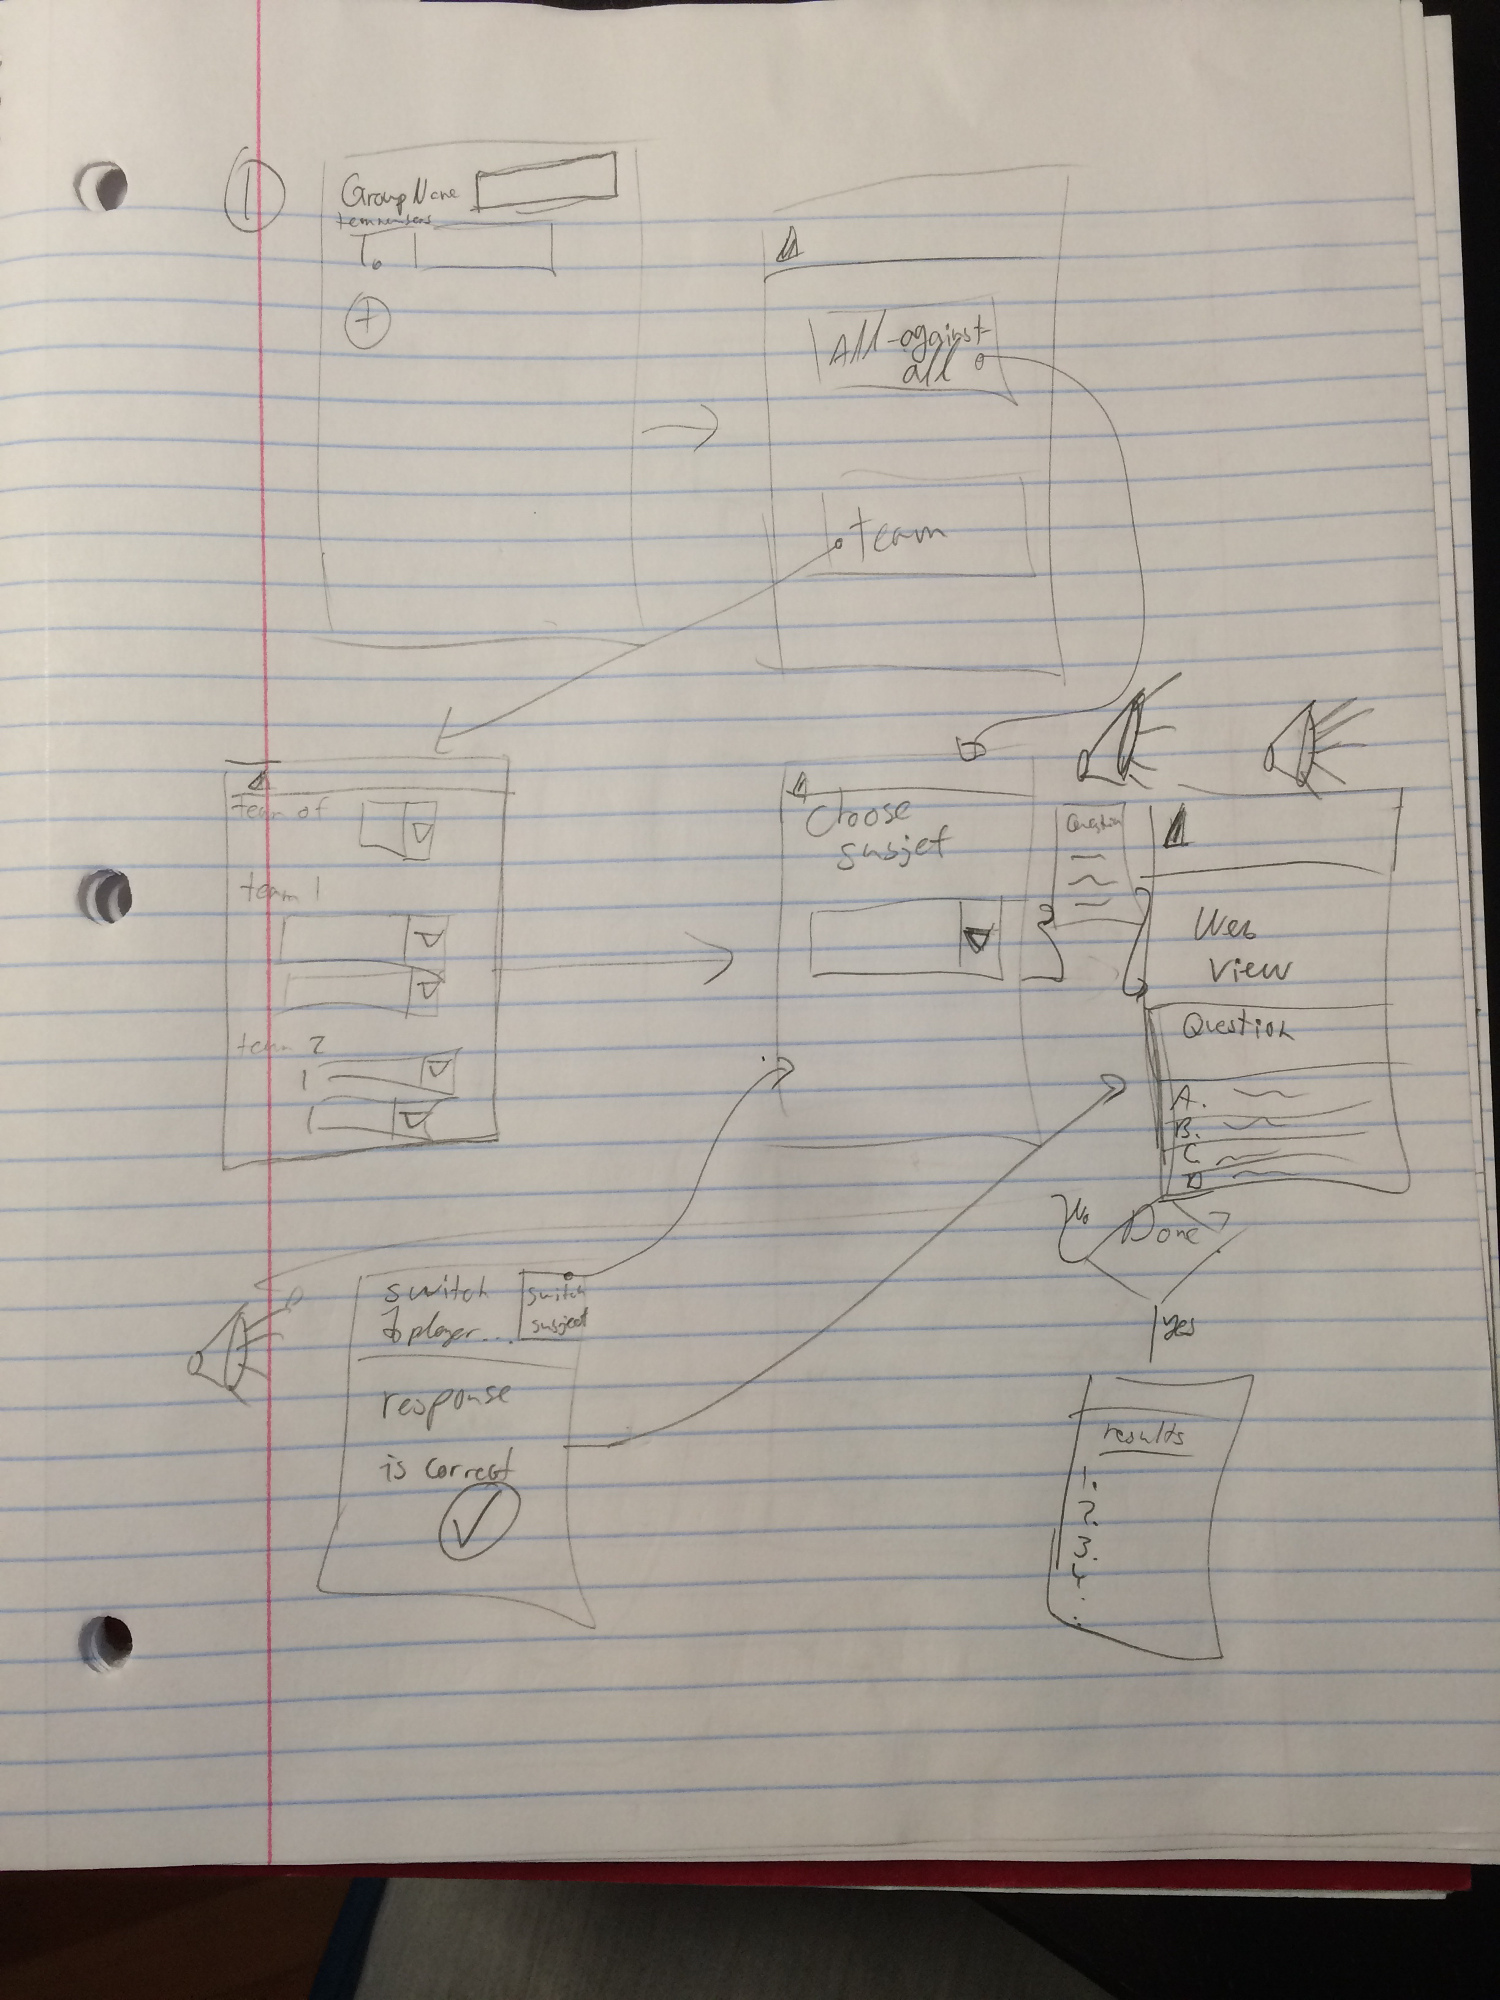 1
Group Name
To
+
All-against-
all
team
team of
team 1
team 2
Choose
susjet
Question
Web
View
Question
A.
B.
C
D
No
Done ?
yes
switch
to player...
switch
susject
response
is correct
results
1.
2.
3.
4.